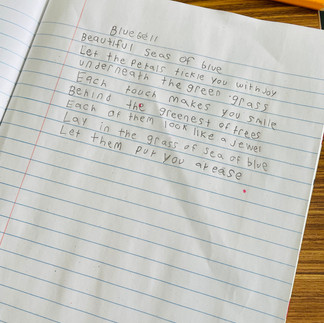 Bluebell
Beautiful seas of blue
Let the petals tickle you with joy
underneath the green grass
Each touch makes you smile
Behind the greenest of trees
Each of them look like a jewel
Lay in the grass of sea of blue
Let them put you at ease